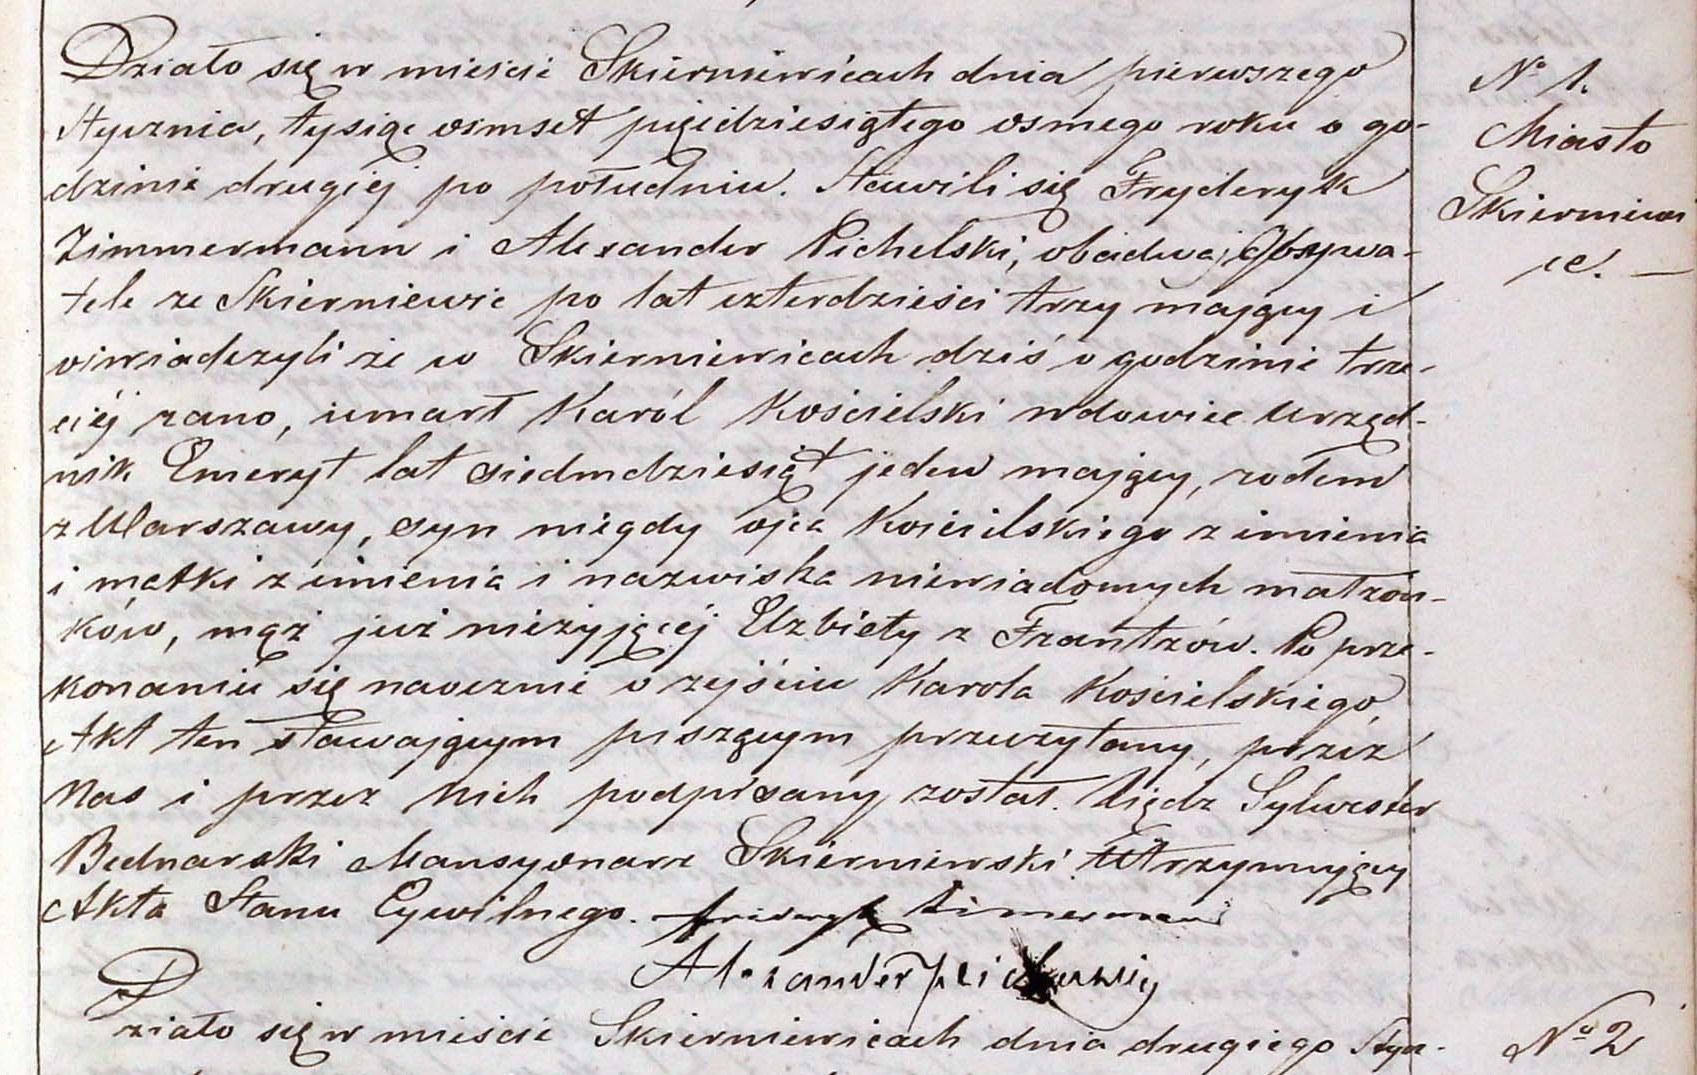 Działo się w mieście Skierniewicach dnia pierwszego
Stycznia, tysiąc osmset pięćdziesiątego osmego roku o go-
dzinie drugiéj po południu. Stawili się Fryderyk
Zimmermann i Alexander Pichelski, obadwaj Obywa-
tele ze Skierniewic po lat czterdzieści trzy mający i
oświadczyli że w Skierniewicach dziś o godzinie trze-
ciéj rano, umarł Karól Kościelski wdowiec Urzęd-
nik Emeryt lat siedmdziesiąt jeden mający, rodem
z Warszawy, syn niegdy ojca Kościelskiego z imienia
i matki z imienia i nazwiska niewiadomych małżon-
ków, mąż już nieżyjącéj Elżbiety z Frantzów. Po prze-
konaniu się naocznie o zejściu Karola Kościelskiego,
Akt ten stawającym piszącym przeczytany, przez
Nas i przez nich podpisany został. Xiądz Sylwester
Bednarski Mansyonarz Skierniewski Utrzymujący
Akta Stanu Cywilnego. Frideryk Zimermann
Alexander
Działo się w mieście Skierniewicach dnia drugiego Stycz-
No 1.
Miasto
Skierniewi
ce. —
No 2